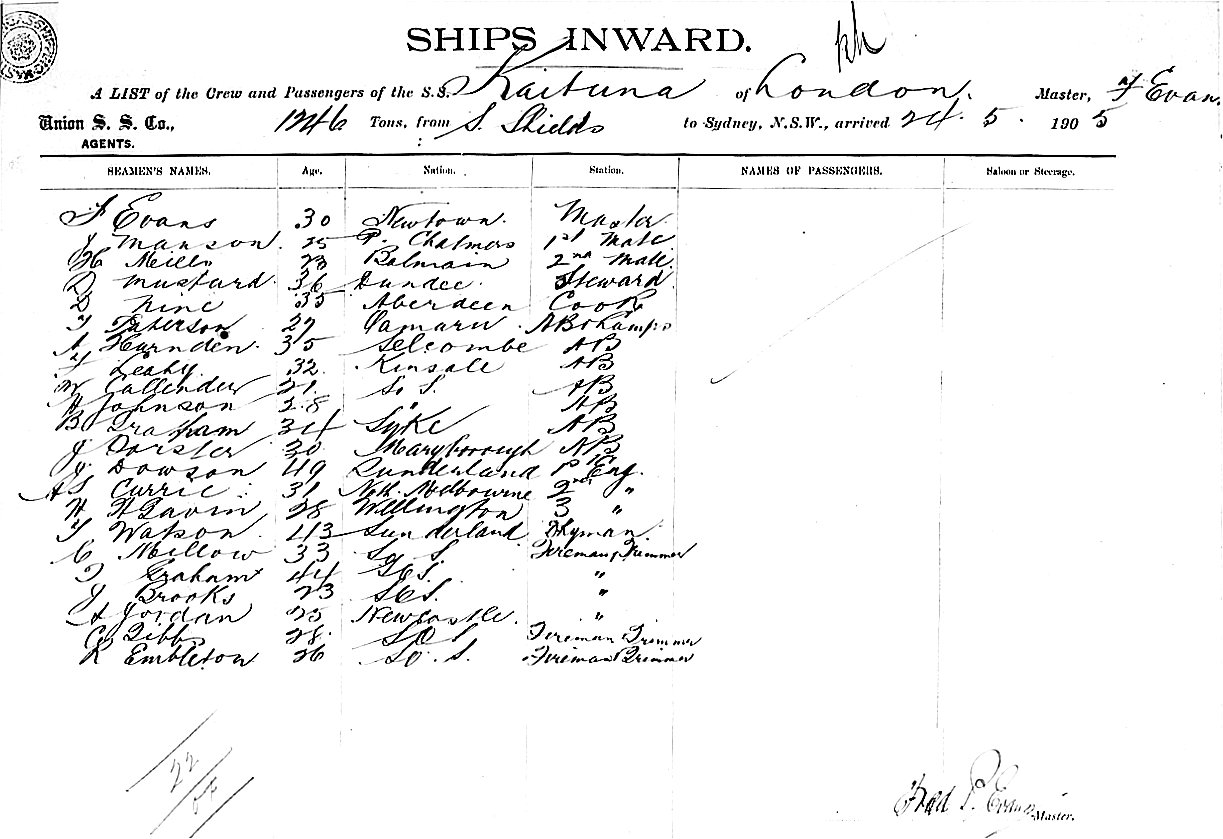 SHIPS INWARD.
A LIST of the Crew and Passengers of the S.S. Kaituna of London. Master, F Evans
Union S. S. Co., 1246 Tons, from S. Shields to Sydney, N.S.W., arrived 24. 5. 1905
AGENTS.
SEAMEN'S NAMES. Age. Nation. Station. NAMES OF PASSENGERS. Saloon or Steerage.
F Evans 30 Newtown. Master
J Manson. 25 P. Chalmers 1st Mate
H Neills 23 Balmain 2nd Mate
D Mustard 36 Dundee. Steward
D Nine 35 Aberdeen Cook
T Paterson 27 Oamaru AB & Lamps
A Harnden. 35 Selcombe AB
Leahy. 32. Kinsale AB
W Callender 21. So S. AB
A Johnson 28 " AB
B Graham 34 Syke AB
J Forster 30 Maryborough AB
J Dowson 49 Sunderland 1st Eng.
AS Currie 31 Nth. Melbourne 2nd "
H 28 Wellington 3 "
T Watson 43 Sunderland D'kyman.
C Mellow 33 So S. Fireman & Trimmer
Graham 44 "
J Brooks 23 "
A Jordan 25 Newcastle. "
G Gibb 28. So S Fireman Trimmer
R Embleton 26 So. S. Fireman Trimmer
22
Fred P. Evans Master.